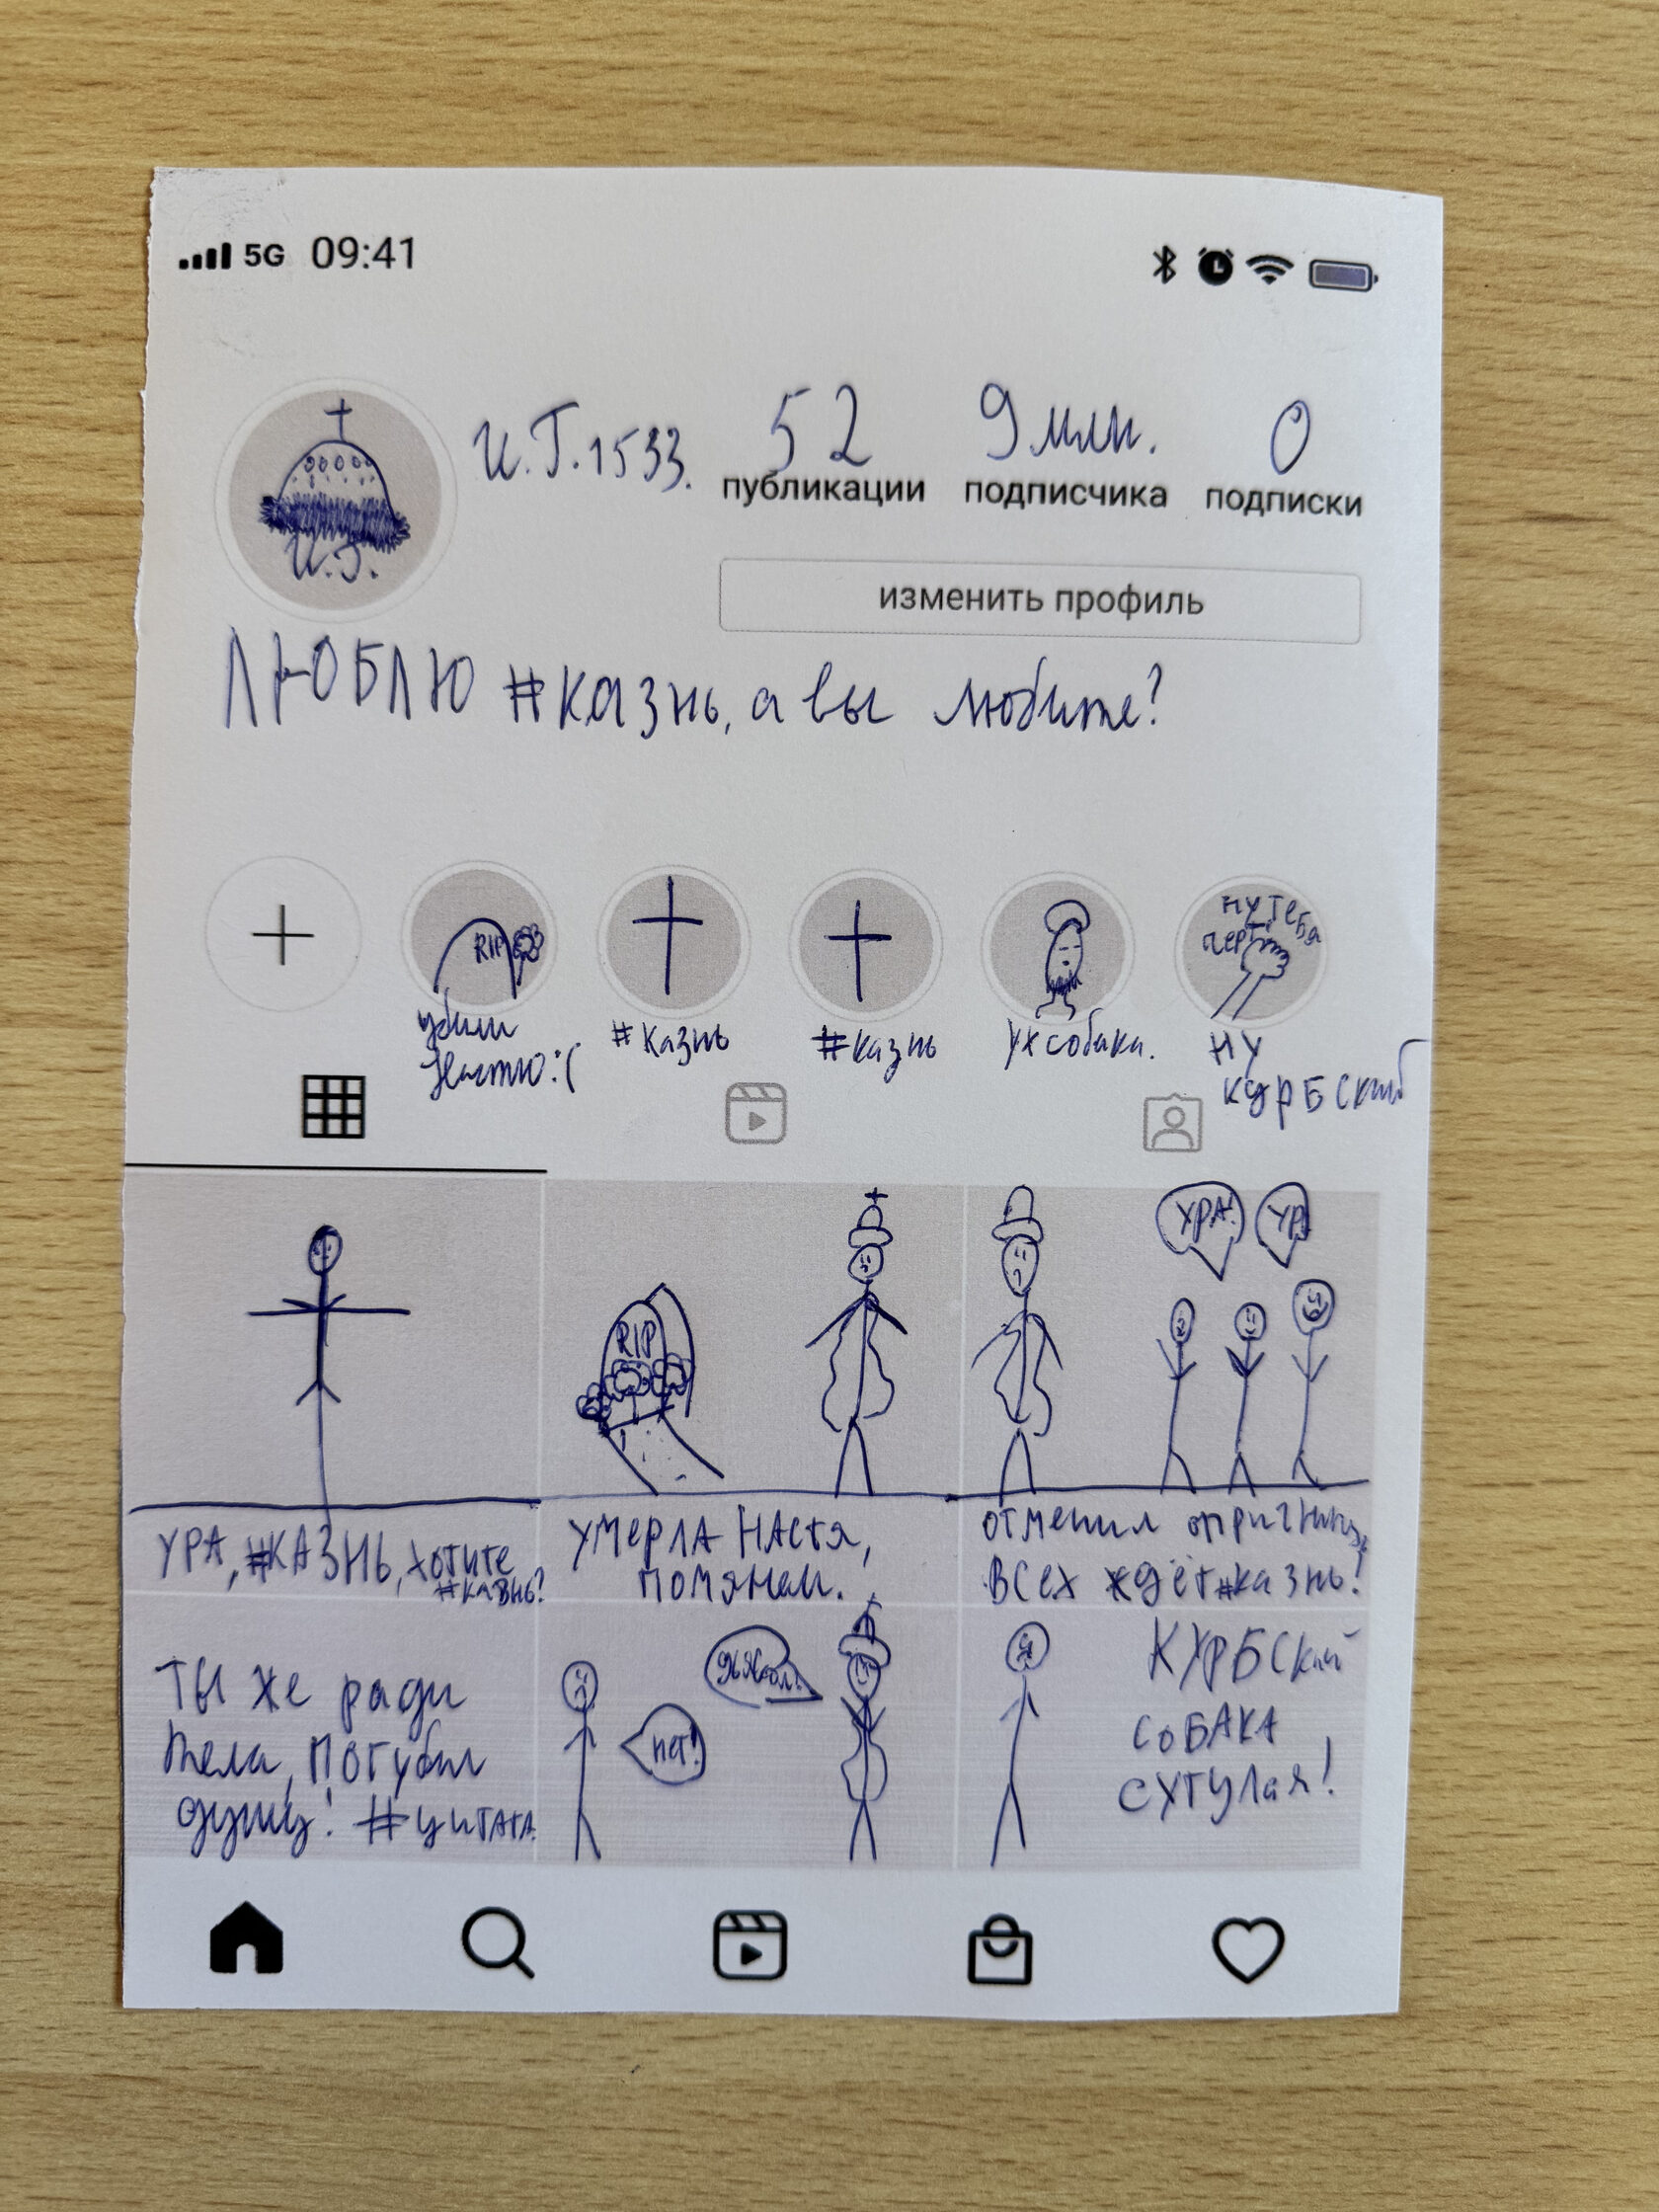 5G 09:41
И.Г.
И.Г.1533.
52 9 млн. 0
публикации подписчика подписки
изменить профиль
ЛЮБЛЮ #казнь, а вы любите?
RIP
НУ ТЕБЯ
черт
убили
Настю:(
#казнь
#казнь
ух собака.
НУ
КУРБСкий
RIP
УРА!
УР
УРА, #КАЗНЬ, хотите
#казнь?
УМЕРЛА НАСТЯ,
помянем.
отменил опричнину,
ВСЕХ ждёт #казнь!
ТЫ же ради
тела, погубил
душу! #цитата
нет!
КУРБСкий
СОБАКА
СУТУЛАЯ!